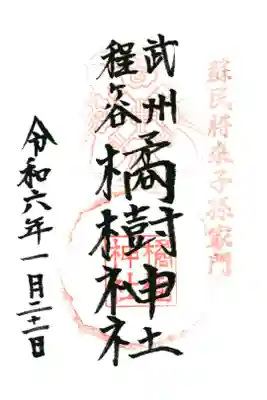 蘇民将来子孫家門
武州
程ヶ谷
橘樹神社
橘樹神社
令和六年一月二十一日